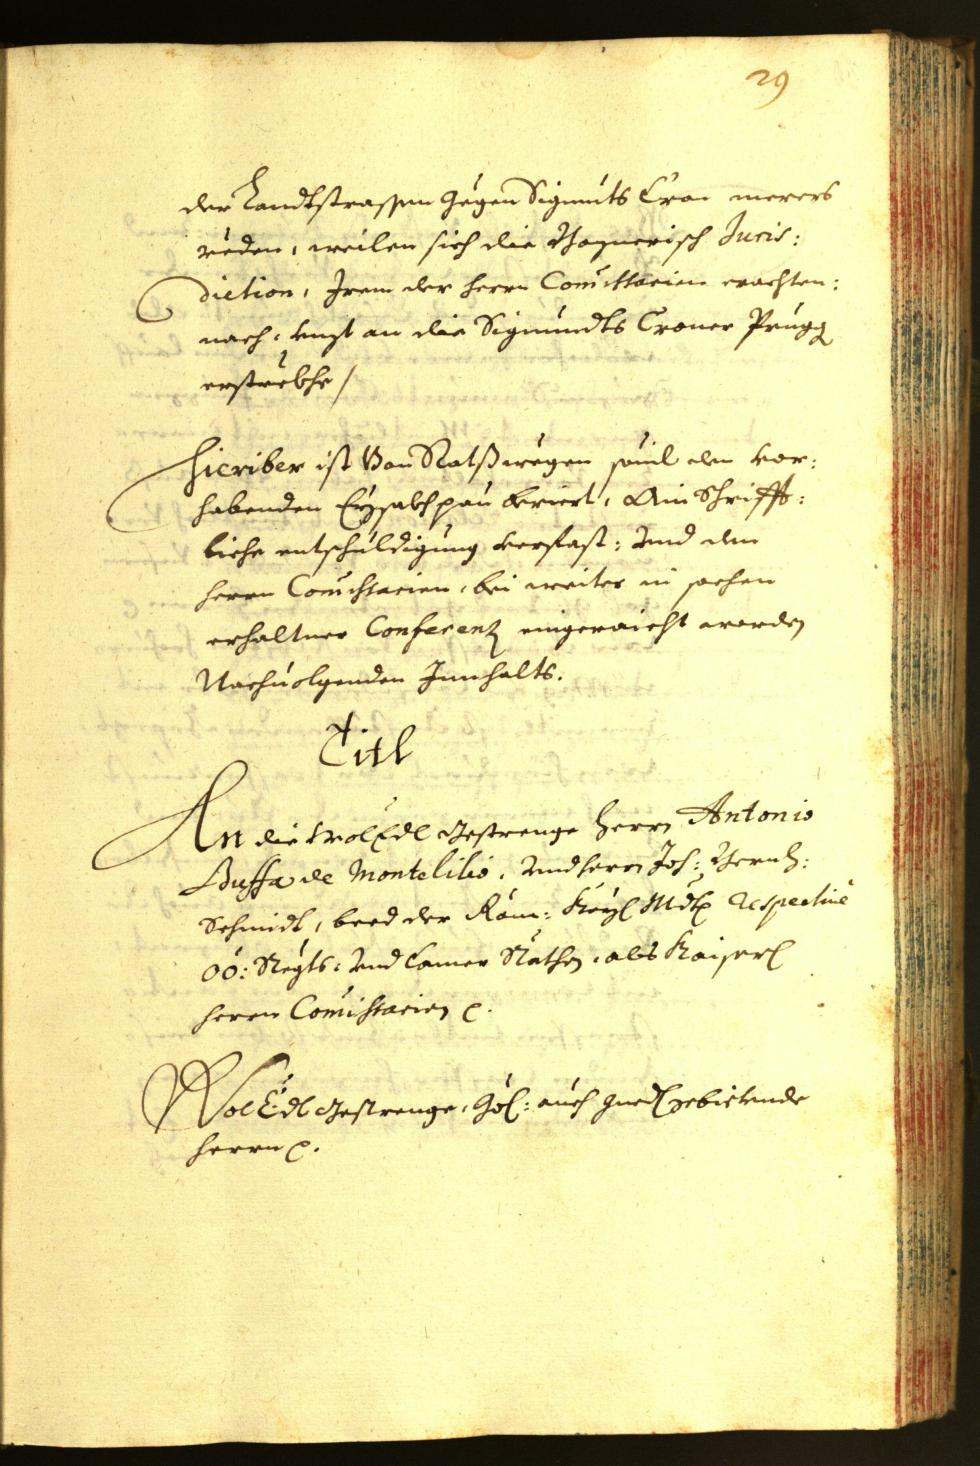 29
der Landtstrassen gegen Sigmuts Cron merers
rieden, weilen sich die Wagnerisch Juris:
diction, Irem der herrn Comissarien erachten:
nach, lengst an die Sigmundts Croner Prugg
erstrekhe /
Hieriber ist Von Ratß wegen souil den vor:
habenden Eysakhpau beriert, Ain Schrifft:
liche entschuldigung verfast, Vnd den
herrn Comissarien, bei weiter in sachen
erhaltner Conferenz eingeraicht worden
Nachuolgenden Innhalts.
Titl
An die Wol Edl Gestrenge Herrn Antonio
Buffa de Montelilio, Vnd herrn Joh:
Schmidt, beed der Röm: Kayl Mtt Respectiue
OÖ: Regts: Vnd Camer Räthen, als Kaiserl
herrn Comissarien ꝛ.
Wol Edl Gestrenge, auch gnedl gebietende
herrn ꝛ.